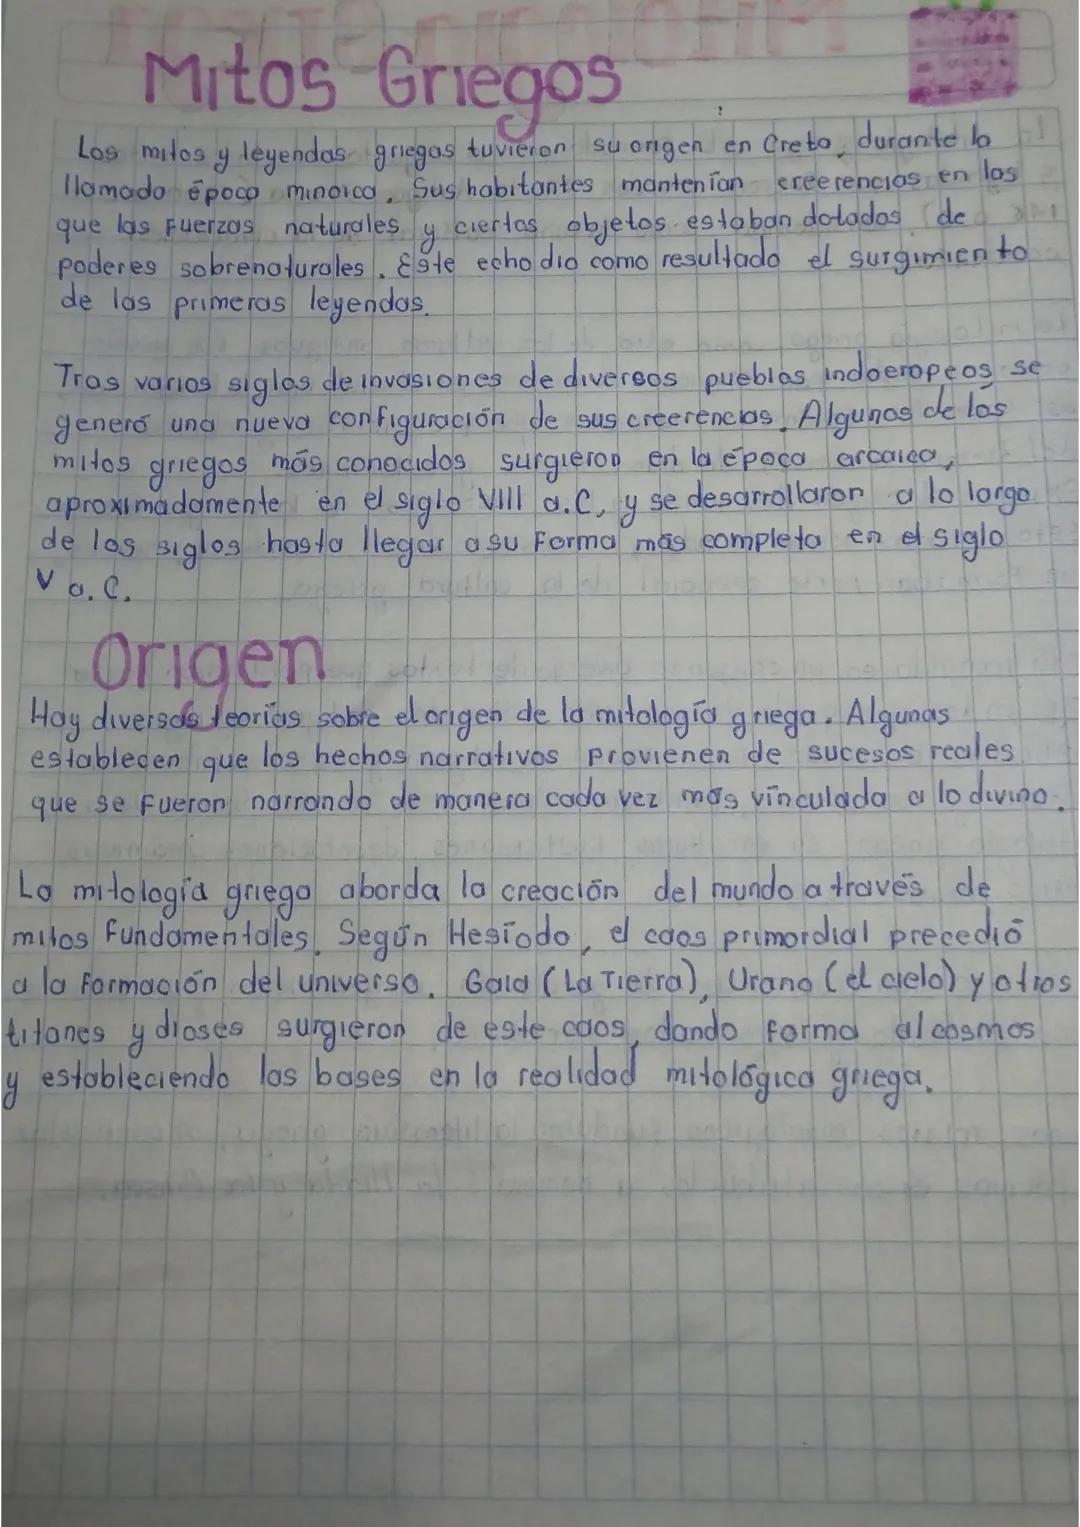 Mitos Griegos
Los mitos y leyendas griegas tuvieron su origen en Creta, durante la
llamada época minoica. Sus habitantes mantenían creerencias en las
que las fuerzas naturales y ciertos objetos estaban dotados de
poderes sobrenaturales. Este echo dio como resultado el surgimiento
de las primeras leyendas.
Tras varios siglos de invasiones de diversos pueblos indoeropeos se
generó una nueva configuración de sus creerencias. Algunos de los
mitos griegos más conocidos surgieron en la época arcaica,
aproximadamente en el siglo VIII a.C, y se desarrollaron a lo largo
de los siglos hasta llegar a su forma más completa en el siglo
V a.C.
Origen
Hay diversas teorías sobre el origen de la mitología griega. Algunas
establecen que los hechos narrativos provienen de sucesos reales
que se fueron narrando de manera cada vez más vinculada a lo divino.
La mitología griega aborda la creación del mundo a través de
mitos fundamentales. Según Hesíodo, el caos primordial precedió
a la formación del universo. Gaia (La Tierra), Urano (el cielo) y otros
titanes y dioses surgieron de este caos, dando forma al cosmos
y estableciendo las bases en la realidad mitológica griega.